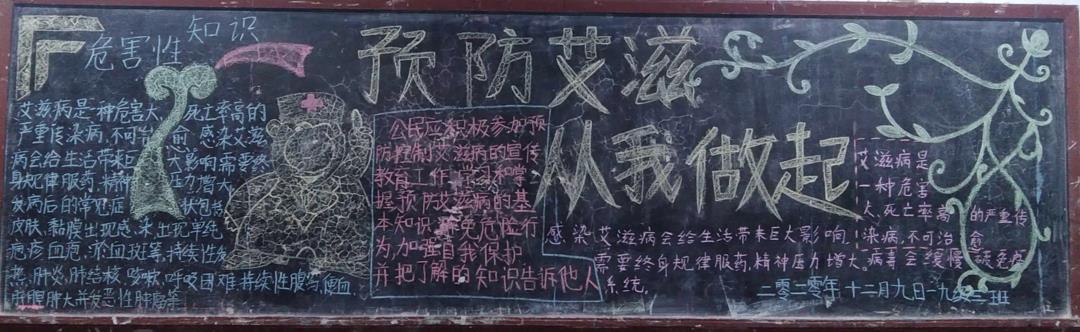 危害性 知识
艾滋病是一种危害大,死亡率高的
严重传染病,不可治愈 感染艾滋
病会给生活带来巨大影响需要终
身规律服药,精神压力增大
发病后的常见症状包括
皮肤、黏膜出现感染出现单纯
疱疹血疱、淤血斑等,持续性发
热,肝炎,肺结核,咳嗽,呼吸困难持续性腹泻,便血,
肿大并发恶性肿瘤等
预防艾滋
从我做起
公民应积极参加预
防控制艾滋病的宣传
教育工作,学习和掌
握预防艾滋病的基
本知识,避免危险行
为,加强自我保护
并把了解的知识告诉他人
艾滋病是
一种危害
大,死亡率高的严重传
染病,不可治愈
感染艾滋病会给生活带来巨大影响!
需要终身规律服药,精神压力增大。病毒会缓慢破坏免疫
系统。
二零二零年十二月九日一九三班